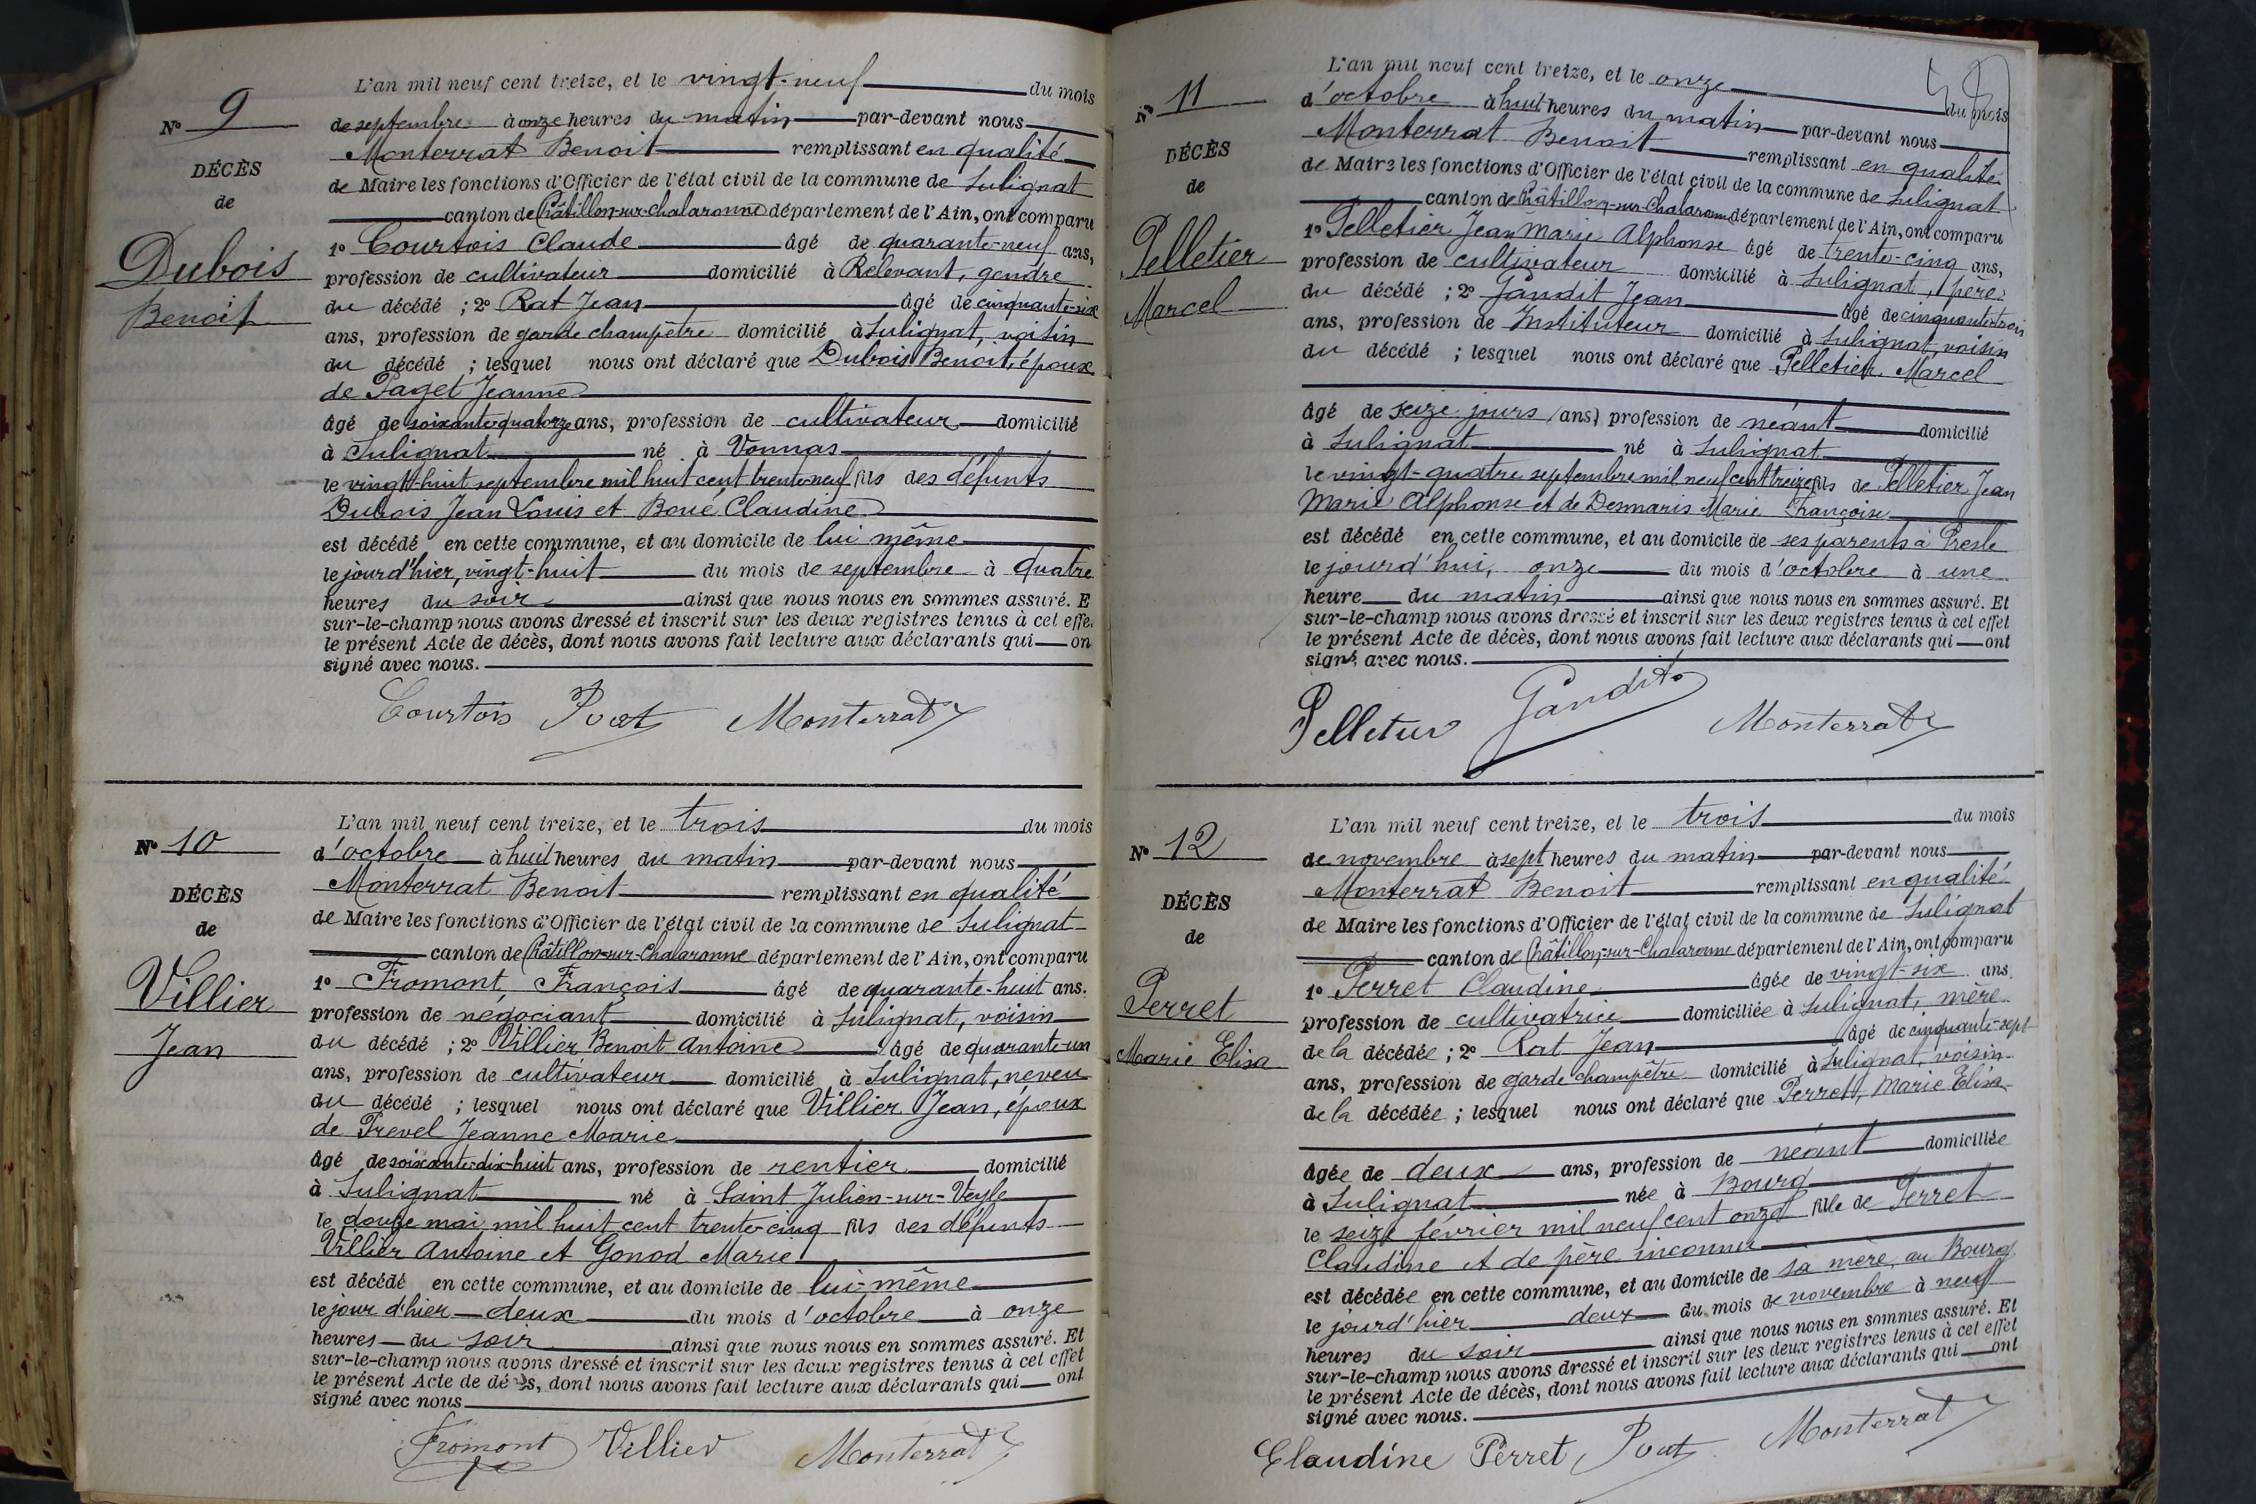 L'an mil neuf cent treize, et le vingt-neuf du mois
N° 9
de septembre à onze heures du matin par-devant nous
Monterrat Benoit remplissant en qualité
DÉCÈS
de Maire les fonctions d'Officier de l'état civil de la commune de Sulignat
de
canton de Châtillon-sur-Chalaronne département de l'Ain, ont comparu
1° Courtois Claude âgé de quarante-neuf ans,
Dubois
profession de cultivateur domicilié à Relevant, gendre
Benoit
du décédé ; 2° Rat Jean âgé de cinquante-six
ans, profession de garde champêtre domicilié à Sulignat, voisin
du décédé ; lesquel nous ont déclaré que Dubois Benoit, époux
de Paget Jeanne
âgé de soixante-quatorze ans, profession de cultivateur domicilié
à Sulignat né à Vonnas
le vingt-huit septembre mil huit cent trente-neuf fils des défunts
Dubois Jean Louis et Boué Claudine
est décédé en cette commune, et au domicile de lui même
le jourd'hier, vingt-huit du mois de septembre à quatre
heures du soir ainsi que nous nous en sommes assuré. E
sur-le-champ nous avons dressé et inscrit sur les deux registres tenus à cet effe
le présent Acte de décès, dont nous avons fait lecture aux déclarants qui on
signé avec nous.
Courtois Rat Monterrat
L'an mil neuf cent treize, et le trois du mois
N° 10
d'octobre à huit heures du matin par-devant nous
Monterrat Benoit remplissant en qualité
DÉCÈS
de Maire les fonctions d'Officier de l'état civil de la commune de Sulignat
de
canton de Châtillon-sur-Chalaronne département de l'Ain, ont comparu
1° Fromont François âgé de quarante-huit ans.
Villier
profession de négociant domicilié à Sulignat, voisin
Jean
du décédé ; 2° Villier Benoit Antoine âgé de quarante-un
ans, profession de cultivateur domicilié à Sulignat, neveu
du décédé ; lesquel nous ont déclaré que Villier Jean, époux
de Prevel Jeanne Marie
âgé de soixante-dix-huit ans, profession de rentier domicilié
à Sulignat né à Saint Julien-sur-Veyle
le douze mai mil huit cent trente-cinq fils des défunts
Villier Antoine et Gonod Marie
est décédé en cette commune, et au domicile de lui-même
le jour d'hier deux du mois d'octobre à onze
heures du soir ainsi que nous nous en sommes assuré. Et
sur-le-champ nous avons dressé et inscrit sur les deux registres tenus à cet effet
le présent Acte de décès, dont nous avons fait lecture aux déclarants qui ont
signé avec nous
Fromont Villier Monterrat
L'an mil neuf cent treize, et le onze du mois
N° 11
d'octobre à huit heures du matin par-devant nous
Monterrat Benoit remplissant en qualité
DÉCÈS
de Maire les fonctions d'Officier de l'état civil de la commune de Sulignat
de
canton de Châtillon-sur-Chalaronne département de l'Ain, ont comparu
1° Pelletier Jean Marie Alphonse âgé de trente-cinq ans,
Pelletier
profession de cultivateur domicilié à Sulignat, père
Marcel
du décédé ; 2° Gandit Jean âgé de cinquante-trois
ans, profession de Instituteur domicilié à Sulignat, voisin
du décédé ; lesquel nous ont déclaré que Pelletier Marcel
âgé de seize jours (ans) profession de néant domicilié
à Sulignat né à Sulignat
le vingt-quatre septembre mil neuf cent treize fils de Pelletier Jean
Marie Alphonse et de Desmaris Marie Françoise
est décédé en cette commune, et au domicile de ses parents à Presle
le jourd'hui, onze du mois d'octobre à une
heure du matin ainsi que nous nous en sommes assuré. Et
sur-le-champ nous avons dressé et inscrit sur les deux registres tenus à cet effet
le présent Acte de décès, dont nous avons fait lecture aux déclarants qui ont
signé avec nous.
Pelletier Gandit Monterrat
L'an mil neuf cent treize, et le trois du mois
N° 12
de novembre à sept heures du matin par-devant nous
Monterrat Benoit remplissant en qualité
DÉCÈS
de Maire les fonctions d'Officier de l'état civil de la commune de Sulignat
de
canton de Châtillon-sur-Chalaronne département de l'Ain, ont comparu
1° Perret Claudine âgée de vingt-six ans
Perret
profession de cultivatrice domiciliée à Sulignat, mère
Marie Elisa
de la décédée ; 2° Rat Jean âgé de cinquante-sept
ans, profession de garde champêtre domicilié à Sulignat, voisin
de la décédée ; lesquel nous ont déclaré que Perret, Marie Elisa
âgée de deux ans, profession de néant domiciliée
à Sulignat née à Bourg
le seize février mil neuf cent onze fille de Perret
Claudine et de père inconnu
est décédée en cette commune, et au domicile de sa mère, au Bourg
le jourd'hier deux du mois de novembre à neuf
heures du soir ainsi que nous nous en sommes assuré. Et
sur-le-champ nous avons dressé et inscrit sur les deux registres tenus à cet effet
le présent Acte de décès, dont nous avons fait lecture aux déclarants qui ont
signé avec nous.
Claudine Perret Rat Monterrat